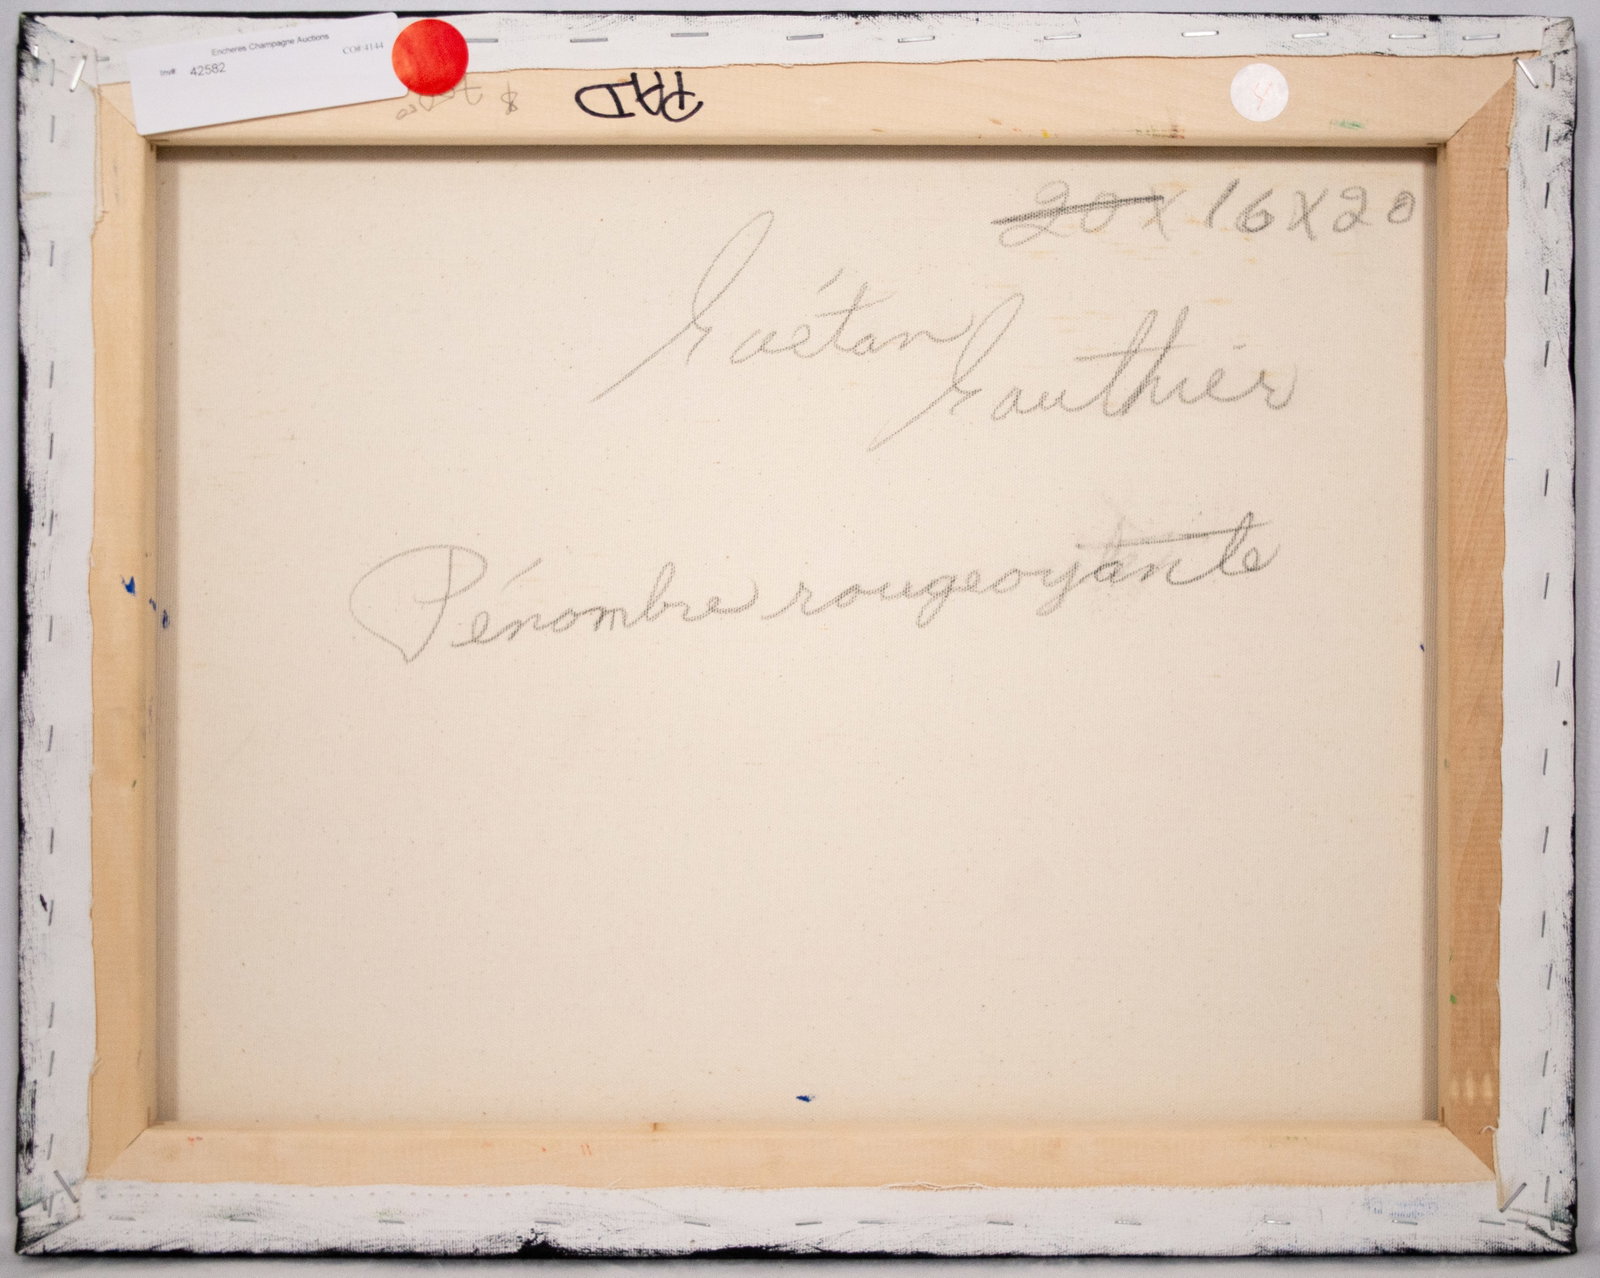 Encheres Champagne Auctions
CO# 4144
Inv# 42582
PAD
20 X 16 X 20
Gaétan
Gauthier
Pénombre rougeoyante